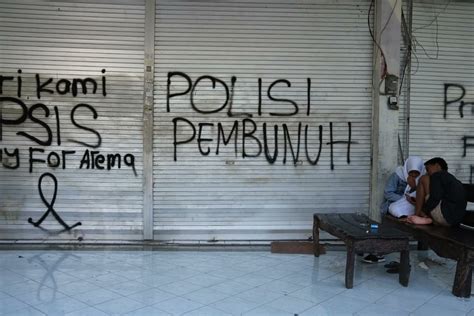 ri kami
PSIS
y For Atema
POLISI
PEMBUNUH
P